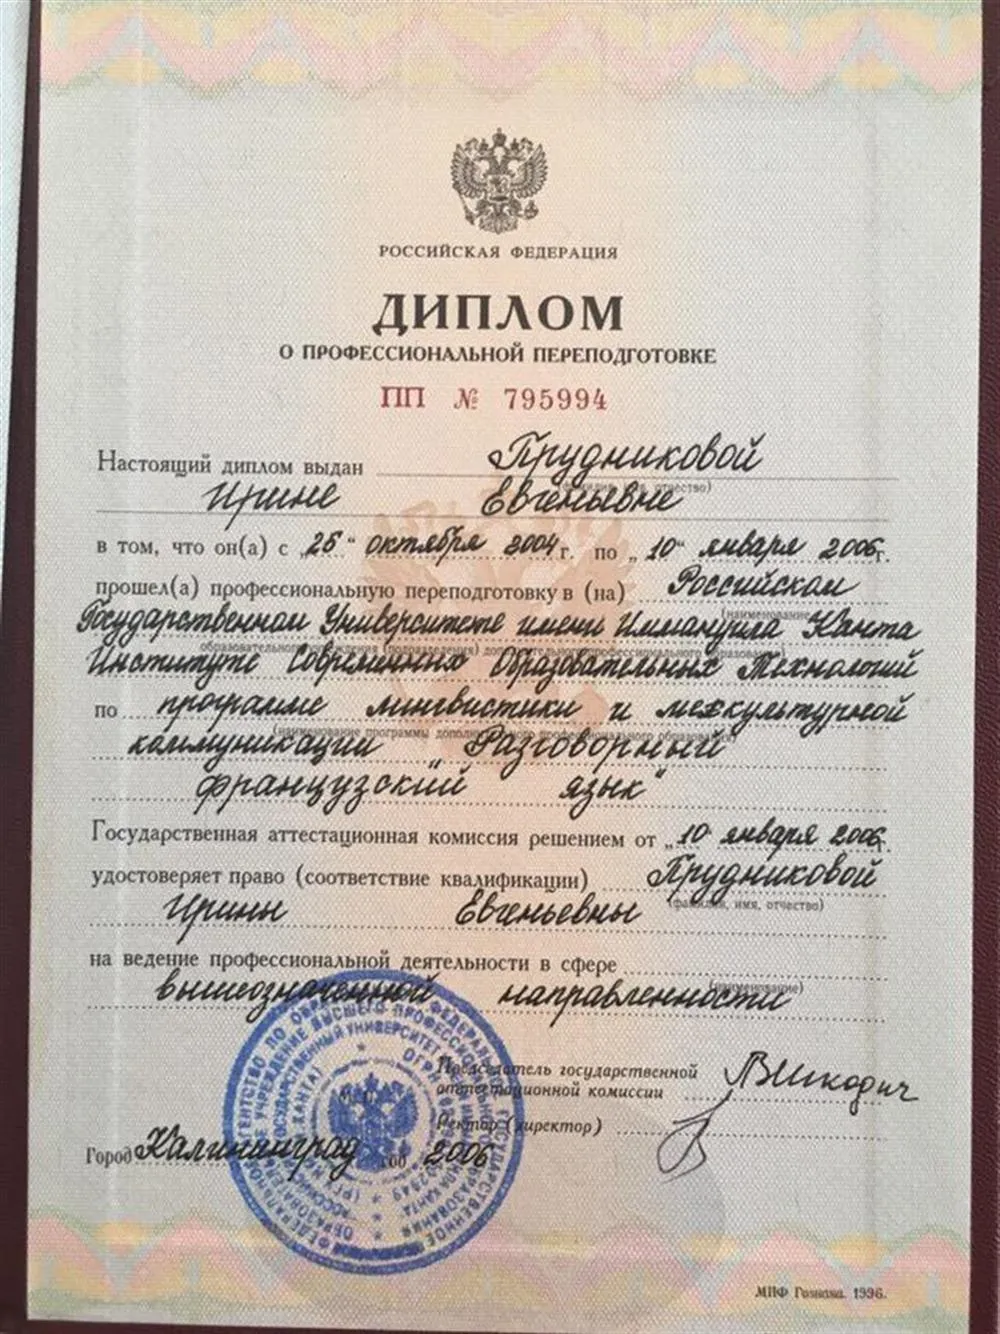 РОССИЙСКАЯ ФЕДЕРАЦИЯ
ДИПЛОМ
О ПРОФЕССИОНАЛЬНОЙ ПЕРЕПОДГОТОВКЕ
ПП № 795994
Настоящий диплом выдан Прудниковой
(фамилия, имя, отчество)
Ирине Евгеньевне
в том, что он(а) с „25“ октября 2004 г. по „10“ января 2006 г.
прошел(а) профессиональную переподготовку в (на) Российском
(наименование
Государственном Университете имени Иммануила Канта
образовательного учреждения (подразделения) дополнительного профессионального образования)
Институте Современных Образовательных Технологий
по программе лингвистики и межкультурной
(наименование программы дополнительного профессионального образования)
коммуникации „Разговорный
французский язык“
Государственная аттестационная комиссия решением от „10“ января 2006
удостоверяет право (соответствие квалификации) Прудниковой
(фамилия, имя, отчество)
Ирины Евгеньевны
на ведение профессиональной деятельности в сфере
(наименование)
вышеозначенной направленности
Председатель государственной
аттестационной комиссии
Ректор (директор)
Город Калининград год 2006
МПФ Гознака. 1996.